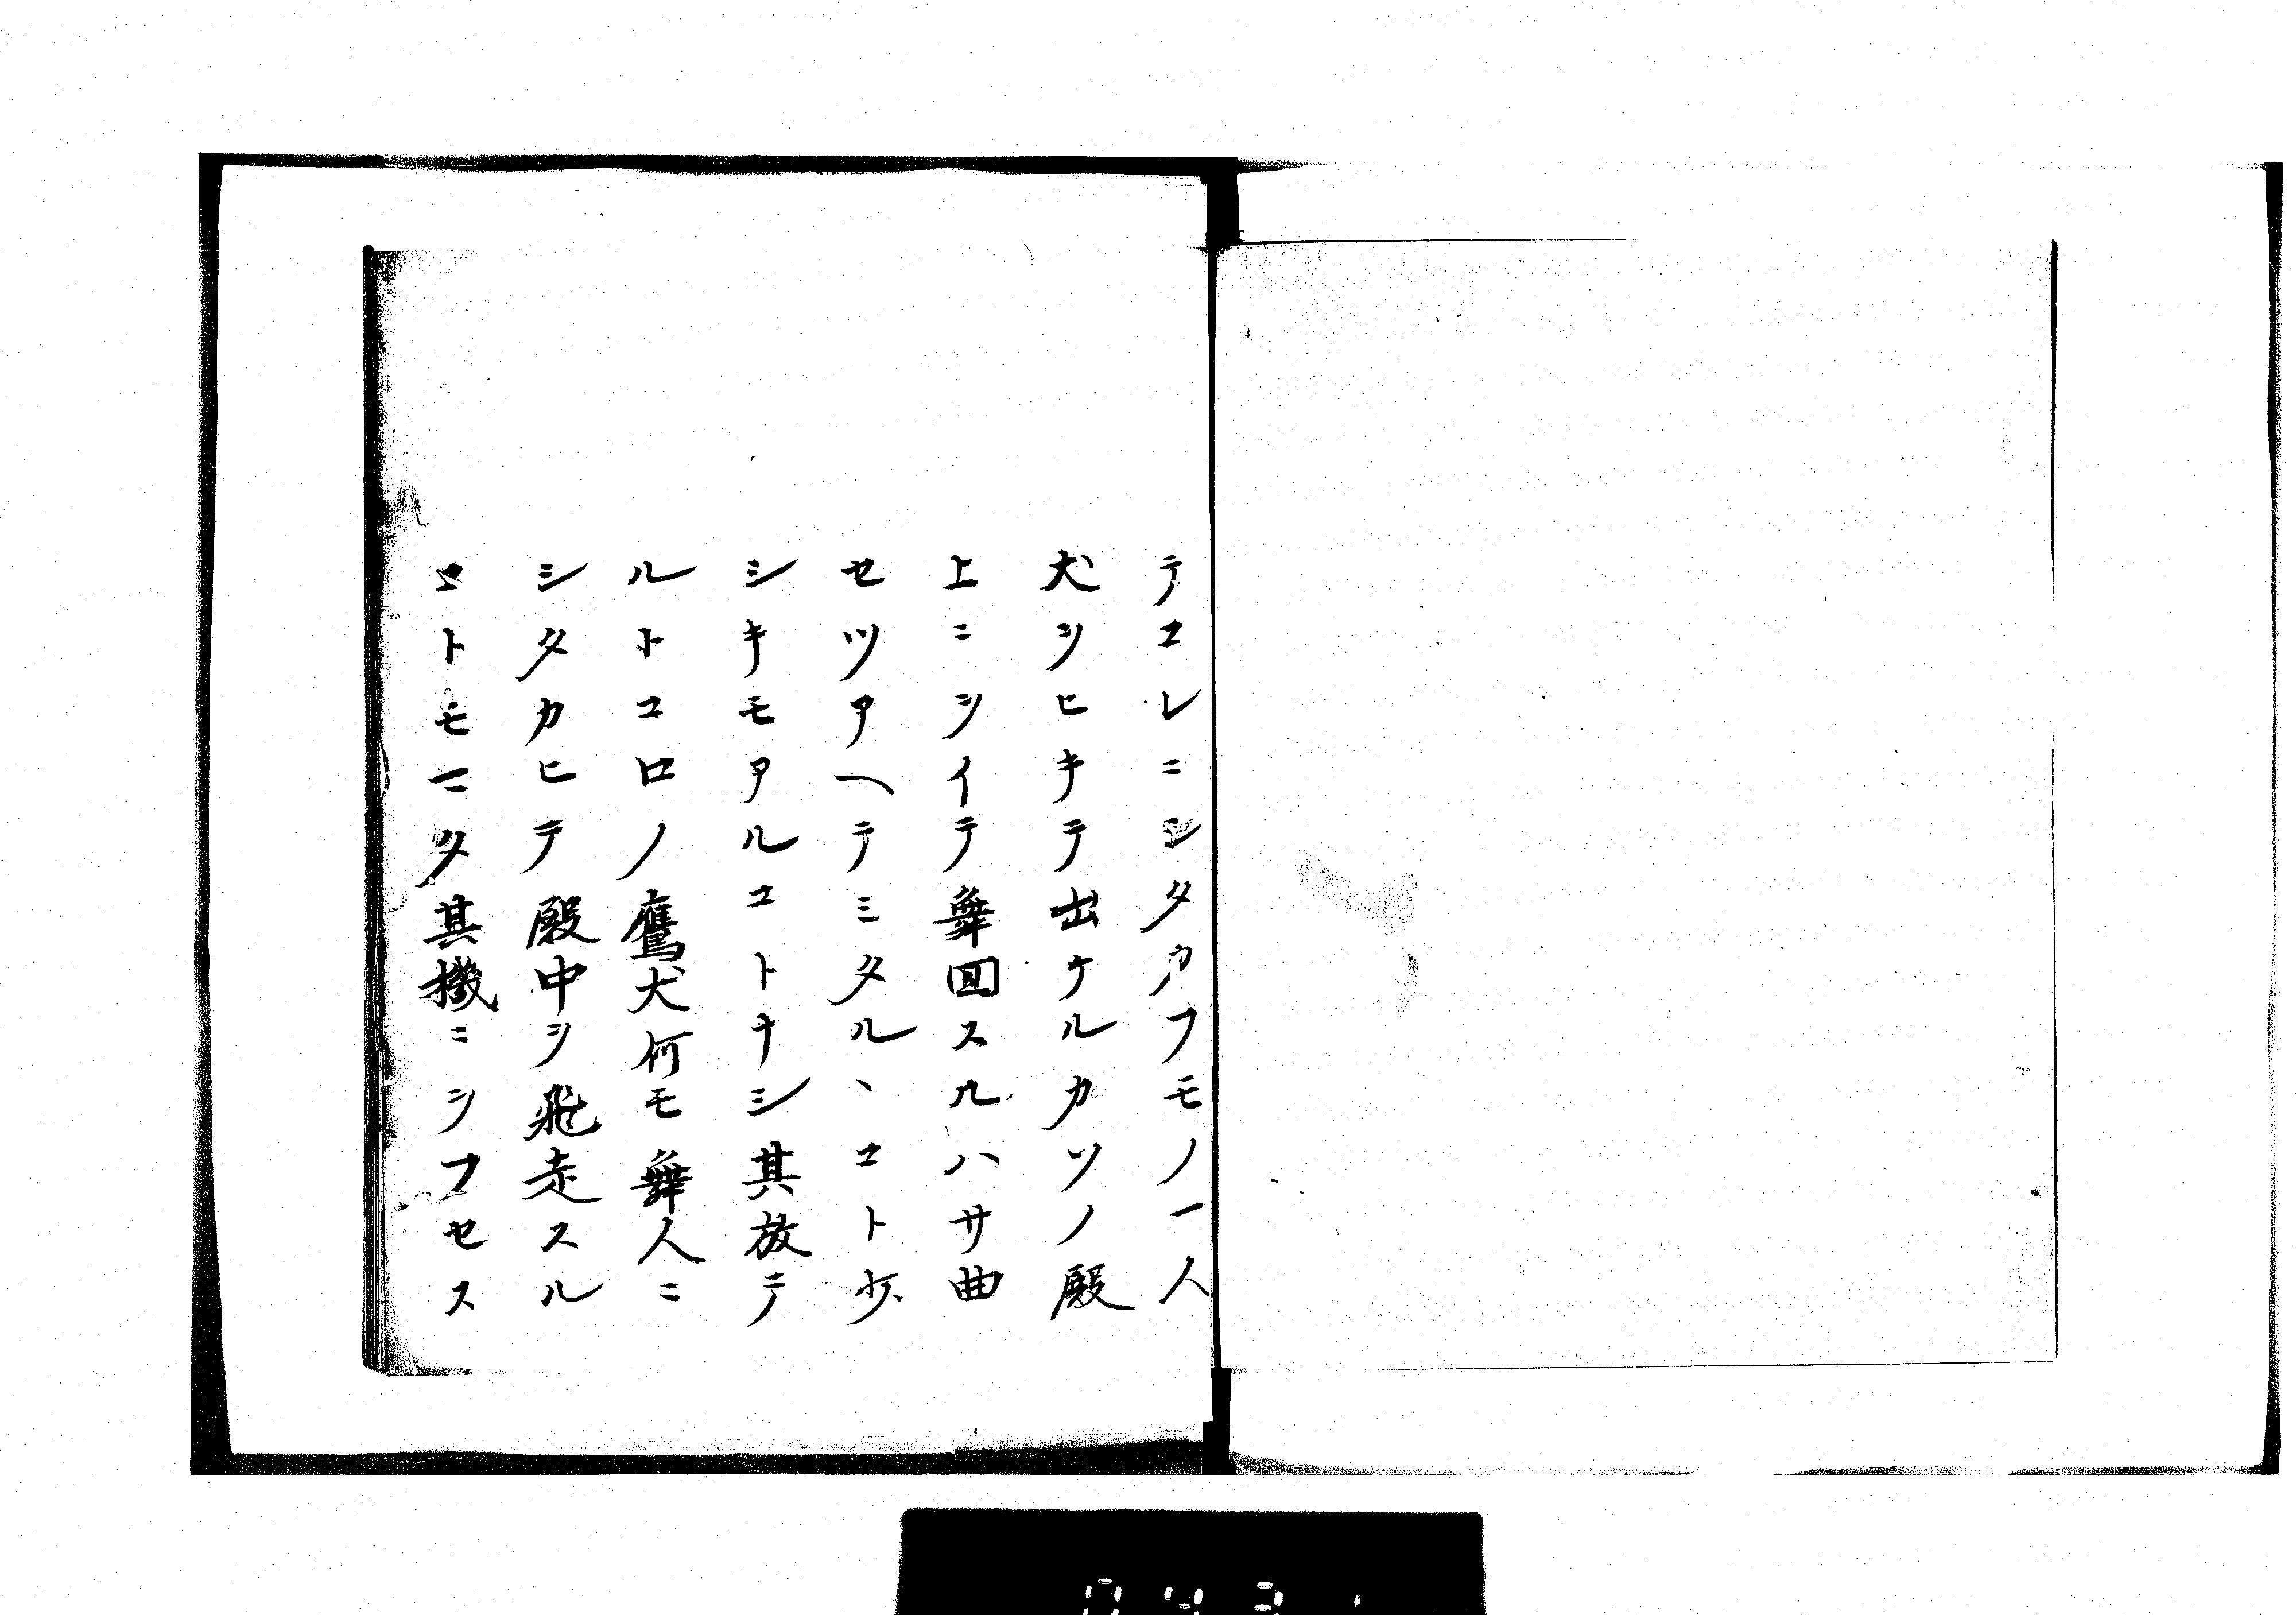 テコレニシタカフモノ一人
犬ヲヒキテ出ケルカソノ殿
上ニヲイテ舞囬スルハサ曲
セツアヘテミタルヽコト少
シキモアルコトナシ其放テ
ルトコロノ鷹犬何モ舞人ニ
シタカヒテ殿中ヲ飛走スル
コトモマタ其機ニヲフセス